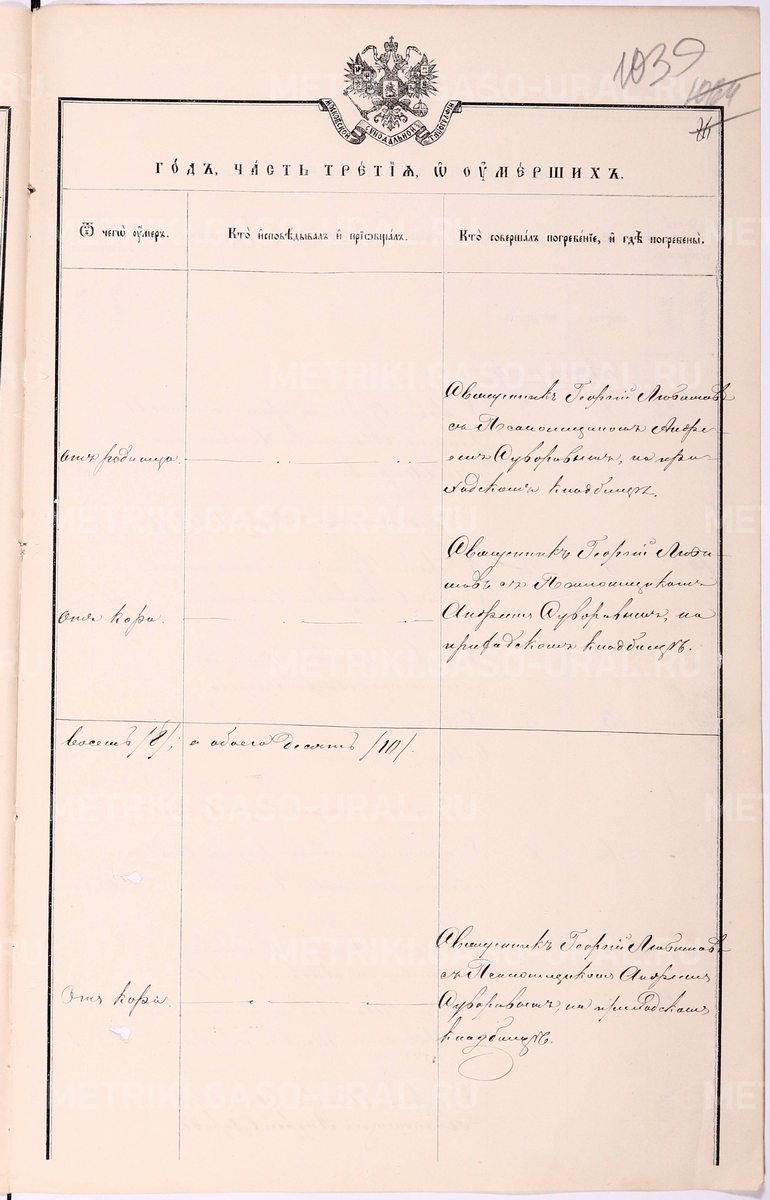 1039
1024
МОСКОВСКОЙ СѴНОДАЛЬНОЙ ТѴПОГРАФІИ
ГО́ДЪ, ЧА́СТЬ ТРЕ́ТІѦ, Ѡ҆ ОУ҆МЕ́РШИХЪ.
Ѿ чегѡ̀ оу҆́меръ.
Кто̀ и҆сповѣ́дывалъ и҆ прїѻбща́лъ.
Кто̀ соверша́лъ погребе́нїе, и҆ гдѣ̀ погребены̀.
METRIKI.GASO-URAL.RU
Священникъ Георгій Любимовъ
съ Псаломщикомъ Андре-
емъ Суворовымъ, на при-
ходскомъ кладбищѣ.
отъ родимца.
Священникъ Георгій Люби-
мовъ съ Псаломщикомъ
Андреемъ Суворовымъ, на
приходскомъ кладбищѣ.
отъ кори.
восемь /8/; а обоего десять /10/.
Священникъ Георгій Любимовъ
съ Псаломщикомъ Андреемъ
Суворовымъ, на приходскомъ
кладбищѣ.
Отъ кори.